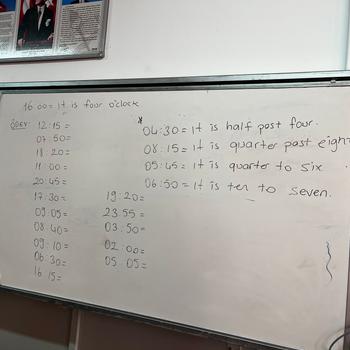 16:00= It is four o'clock
ÖDEV: 12:15=
07:50=
18:20=
11:00=
20:45=
17:30=
09:05=
08:40=
09:10=
06:30=
16:15=
19:20=
23:55=
03:50=
02:00=
05:05=
* 04:30= It is half past four.
08:15= It is quarter past eight
05:45= It is quarter to six
06:50= It is ten to seven.